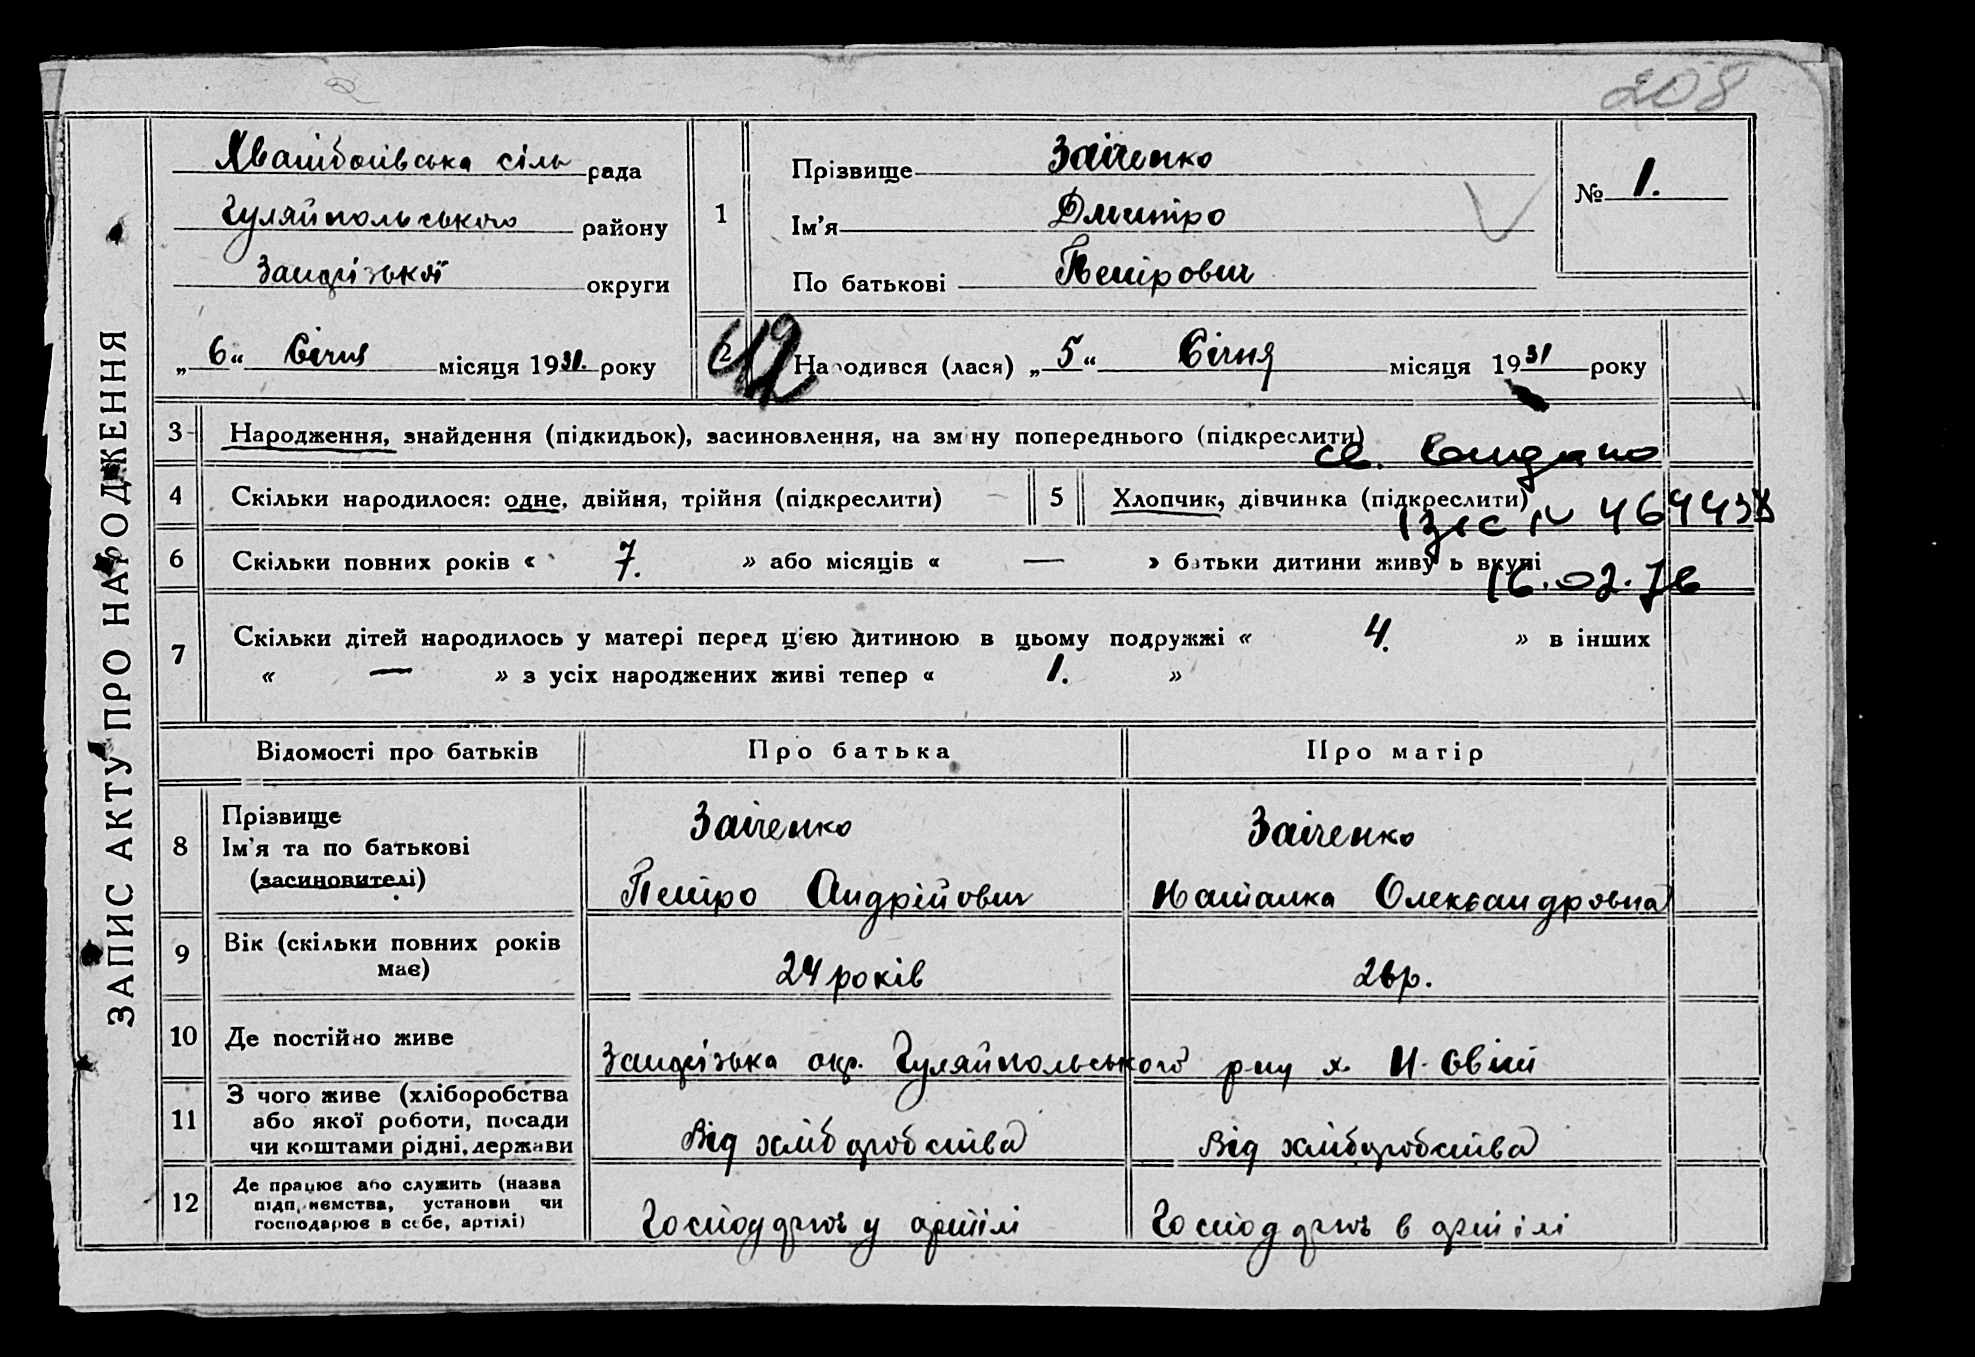 208
ЗАПИС АКТУ ПРО НАРОДЖЕННЯ
сіль рада
Гуляйпольського району
Запорізької округи
„6“ Січня місяця 1931. року
1
Прізвище Заіченко
Ім'я Дмитро
По батькові Петрович
№ 1.
2 Народився (лася) „5“ Січня місяця 1931 року
3 Народження, знайдення (підкидьок), засиновлення, на зміну попереднього (підкреслити)
св.
4 Скільки народилося: одне, двійня, трійня (підкреслити)
5 Хлопчик, дівчинка (підкреслити)
№ 464438
6 Скільки повних років « 7. » або місяців « — » батьки дитини живуть вкупі
16.02.76
7 Скільки дітей народилось у матері перед цією дитиною в цьому подружжі « 4. » в інших
« — » з усіх народжених живі тепер « 1. »
Відомості про батьків Про батька Про матір
8 Прізвище
Ім'я та по батькові
(засиновителі)
Заіченко
Петро Андрійович
Заіченко
Наталка Олександровна
9 Вік (скільки повних років
має)
24 років
26р.
10 Де постійно живе
Запорізька окр. Гуляйпольського р-ну х.
11 З чого живе (хліборобства
або якої роботи, посади
чи коштами рідні, держави
Від хліборобства
Від хліборобства
12 Де працює або служить (назва
підприємства, установи чи
господарює в себе, артілі)
Господарює у артілі
Господарює в артілі